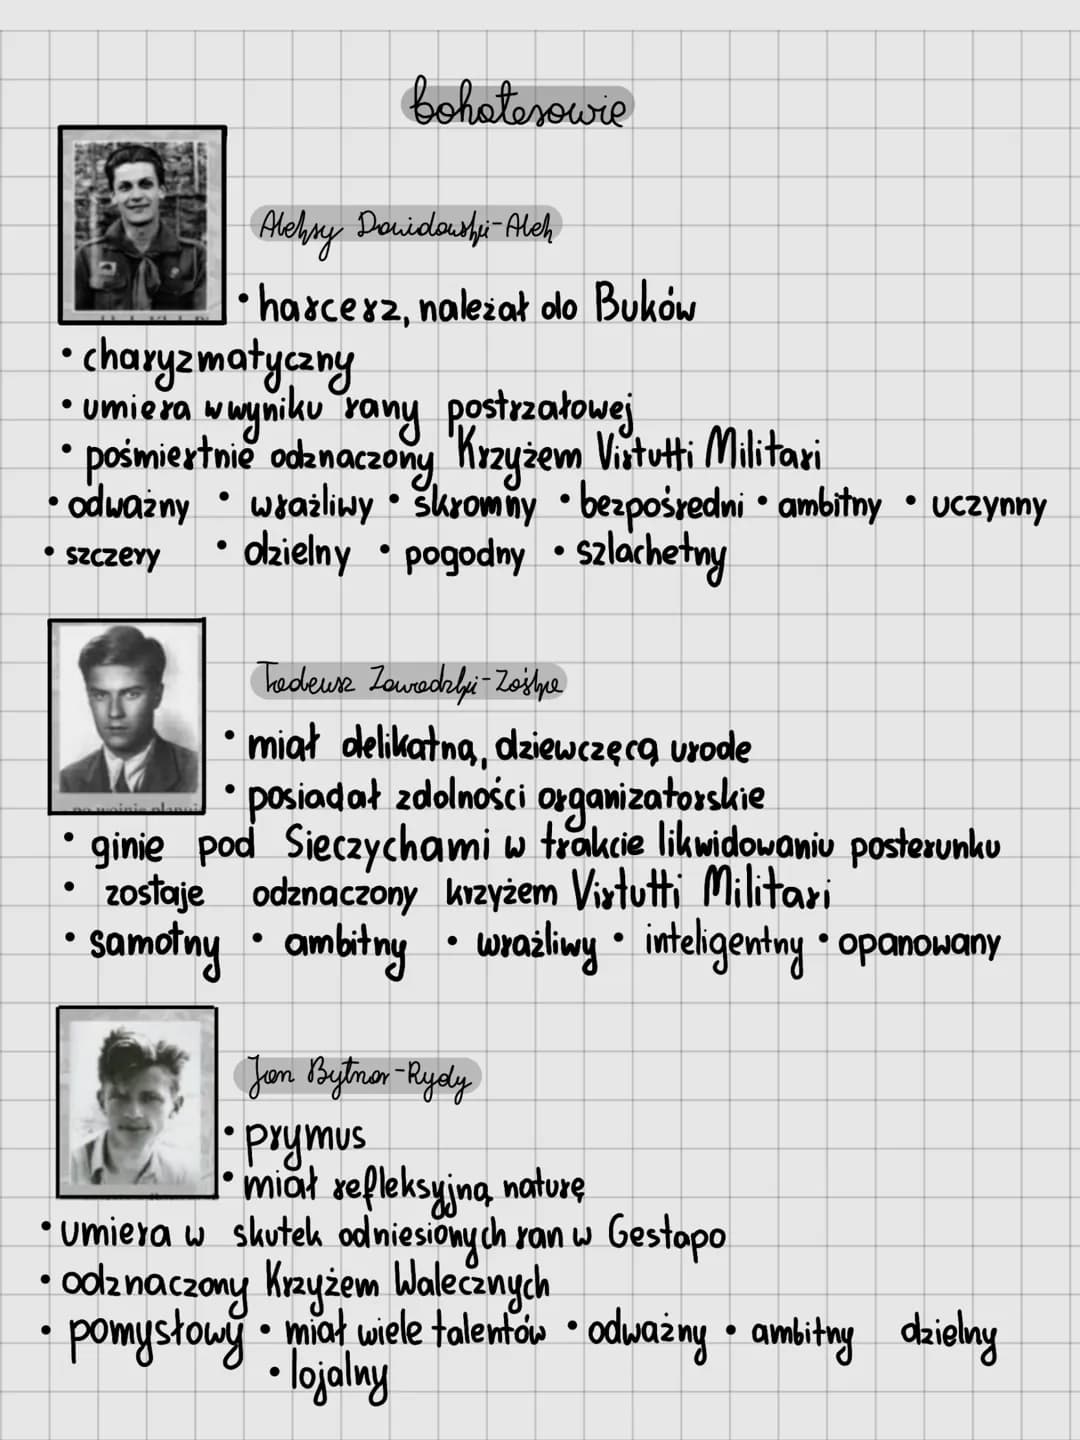 bohaterowie
Aleksy Dawidowski-Alek
• harcerz, należał do Buków
• charyzmatyczny
• umiera w wyniku rany postrzałowej
• pośmiertnie odznaczony Krzyżem Virtutti Militari
• odważny • wrażliwy • skromny • bezpośredni • ambitny • uczynny
• szczery • dzielny • pogodny • szlachetny
Tadeusz Zawadzki-Zośka
• miał delikatną, dziewczęcą urode
• posiadał zdolności organizatorskie
po wojnie planuj
• ginie pod Sieczychami w trakcie likwidowaniu posterunku
• zostaje odznaczony krzyżem Virtutti Militari
• samotny • ambitny • wrażliwy • inteligentny • opanowany
Jan Bytnar-Rydy
• prymus
• miał refleksyjną naturę
• umiera w skutek odniesionych ran w Gestapo
• odznaczony Krzyżem Walecznych
• pomysłowy • miał wiele talentów • odważny • ambitny dzielny
• lojalny